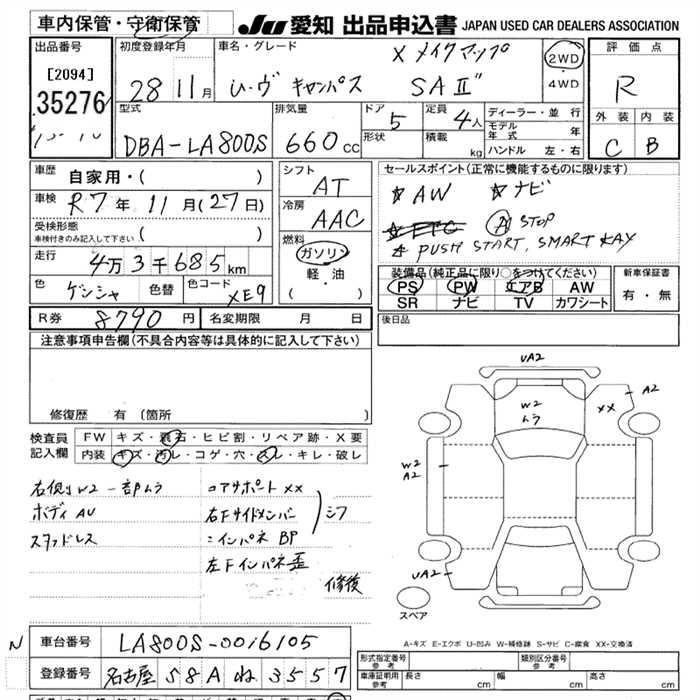 車内保管・守衛保管
JU 愛知 出品申込書 JAPAN USED CAR DEALERS ASSOCIATION
出品番号
[2094]
35276
初度登録年月
28 11月
車名・グレード
X メイクアップ
ム・ヴ キャンバス SAⅡ"
2WD
・
4WD
評価点
R
型式
DBA-LA800S
排気量
660cc
ドア 5
形状
定員 4人
積載 kg
ディーラー・並行
モデル年式 年
ハンドル 左・右
外装 内装
C B
車歴 自家用・( )
車検 R7年 11月(27日)
受検形態
車検付きのみ記入して下さい ( )
走行 4万3千685km
色 ゲンシャ 色替 色コード XE9
シフト
AT
冷房
AAC
燃料
ガソリン
・
軽・油
( )
セールスポイント(正常に機能するものに限ります)
☆AW ☆ナビ
☆ETC A STOP
☆PUSH START, SMART KAY
装備品(純正品に限り○をつけてください)
PS PW エアB AW
SR ナビ TV カワシート
新車保証書
有・無
R券 8790円 名変期限 月 日
後日品
注意事項申告欄(不具合内容等は具体的に記入して下さい)
修復歴 有 (箇所 )
検査員
記入欄
FW キズ・飛石・ヒビ割・リペア跡・X要
内装 キズ・汚レ・コゲ・穴・スレ・キレ・破レ
右側リW2 一部ムラ
ボディAU
スタッドレス
コアサポートXX
右Fサイドメンバー
〃インパネBP
左Fインパネ歪
シワ
修復
UA2
A2
W2
ムラ
XX
W2
A2
UA2
スペア
A-キズ E-エクボ U-凹み W-補修跡 S-サビ C-腐食 XX-交換済
N
車台番号 LA800S-0016105
登録番号 名古屋 58A ね 3557
形式指定番号
参考
類別区分番号
参考
車庫証明用
参考
長さ cm 幅 cm 高さ cm